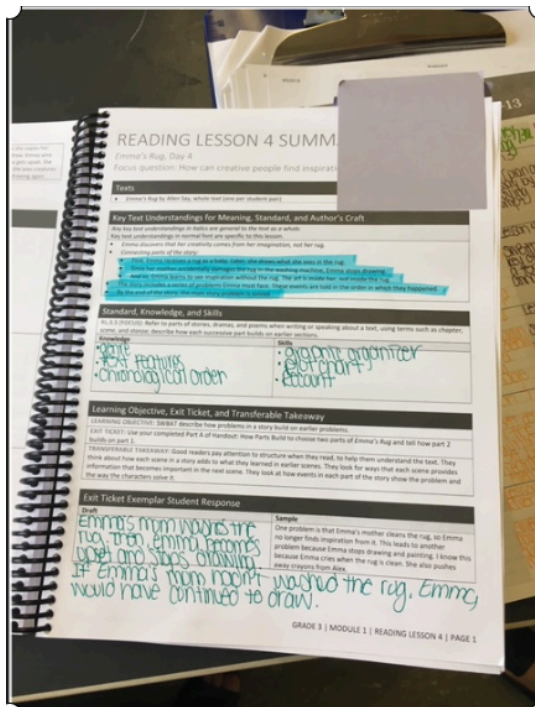 READING LESSON 4 SUMM
Emma's Rug, Day 4
Focus question: How can creative people find inspirati
Texts
• Emma's Rug by Allen Say, whole text (one per student pair)
Key Text Understandings for Meaning, Standard, and Author's Craft
Key text understandings in italics are general to the text as a whole.
Key text understandings in normal font are specific to this lesson.
• Emma discovers that her creativity comes from her imagination, not her rug.
• Connecting parts of the story:
First, Emma receives a rug as a baby. Later, she draws what she sees in the rug.
her mother accidentally damages the rug in the washing machine, Emma stops drawing.
Emma learns to see inspiration without the rug. The art is inside her, not inside the rug.
The story includes a series of problems Emma must face. These events are told in the order in which they happened.
By the end of the story, the main story problem is solved.
Standard, Knowledge, and Skills
RL.3.5 (FOCUS): Refer to parts of stories, dramas, and poems when writing or speaking about a text, using terms such as chapter,
scene, and stanza; describe how each successive part builds on earlier sections.
Knowledge
• genre
• text features
• chronological order
Skills
• graphic organizer
• plot chart
• recount
Learning Objective, Exit Ticket, and Transferable Takeaway
LEARNING OBJECTIVE: SWBAT describe how problems in a story build on earlier problems.
EXIT TICKET: Use your completed Part A of Handout: How Parts Build to choose two parts of Emma's Rug and tell how part 2
builds on part 1.
TRANSFERABLE TAKEAWAY: Good readers pay attention to structure when they read, to help them understand the text. They
think about how each scene in a story adds to what they learned in earlier scenes. They look for ways that each scene provides
information that becomes important in the next scene. They look at how events in each part of the story show the problem and
the way the characters solve it.
Exit Ticket Exemplar Student Response
Draft
Emma's mom washes the
rug, then emma becomes
upset and stops drawing.
If Emma's mom hadn't washed the rug, Emma
would have continued to draw.
Sample
One problem is that Emma's mother cleans the rug, so Emma
no longer finds inspiration from it. This leads to another
problem because Emma stops drawing and painting. I know this
because Emma cries when the rug is clean. She also pushes
away crayons from Alex.
GRADE 3 | MODULE 1 | READING LESSON 4 | PAGE 1